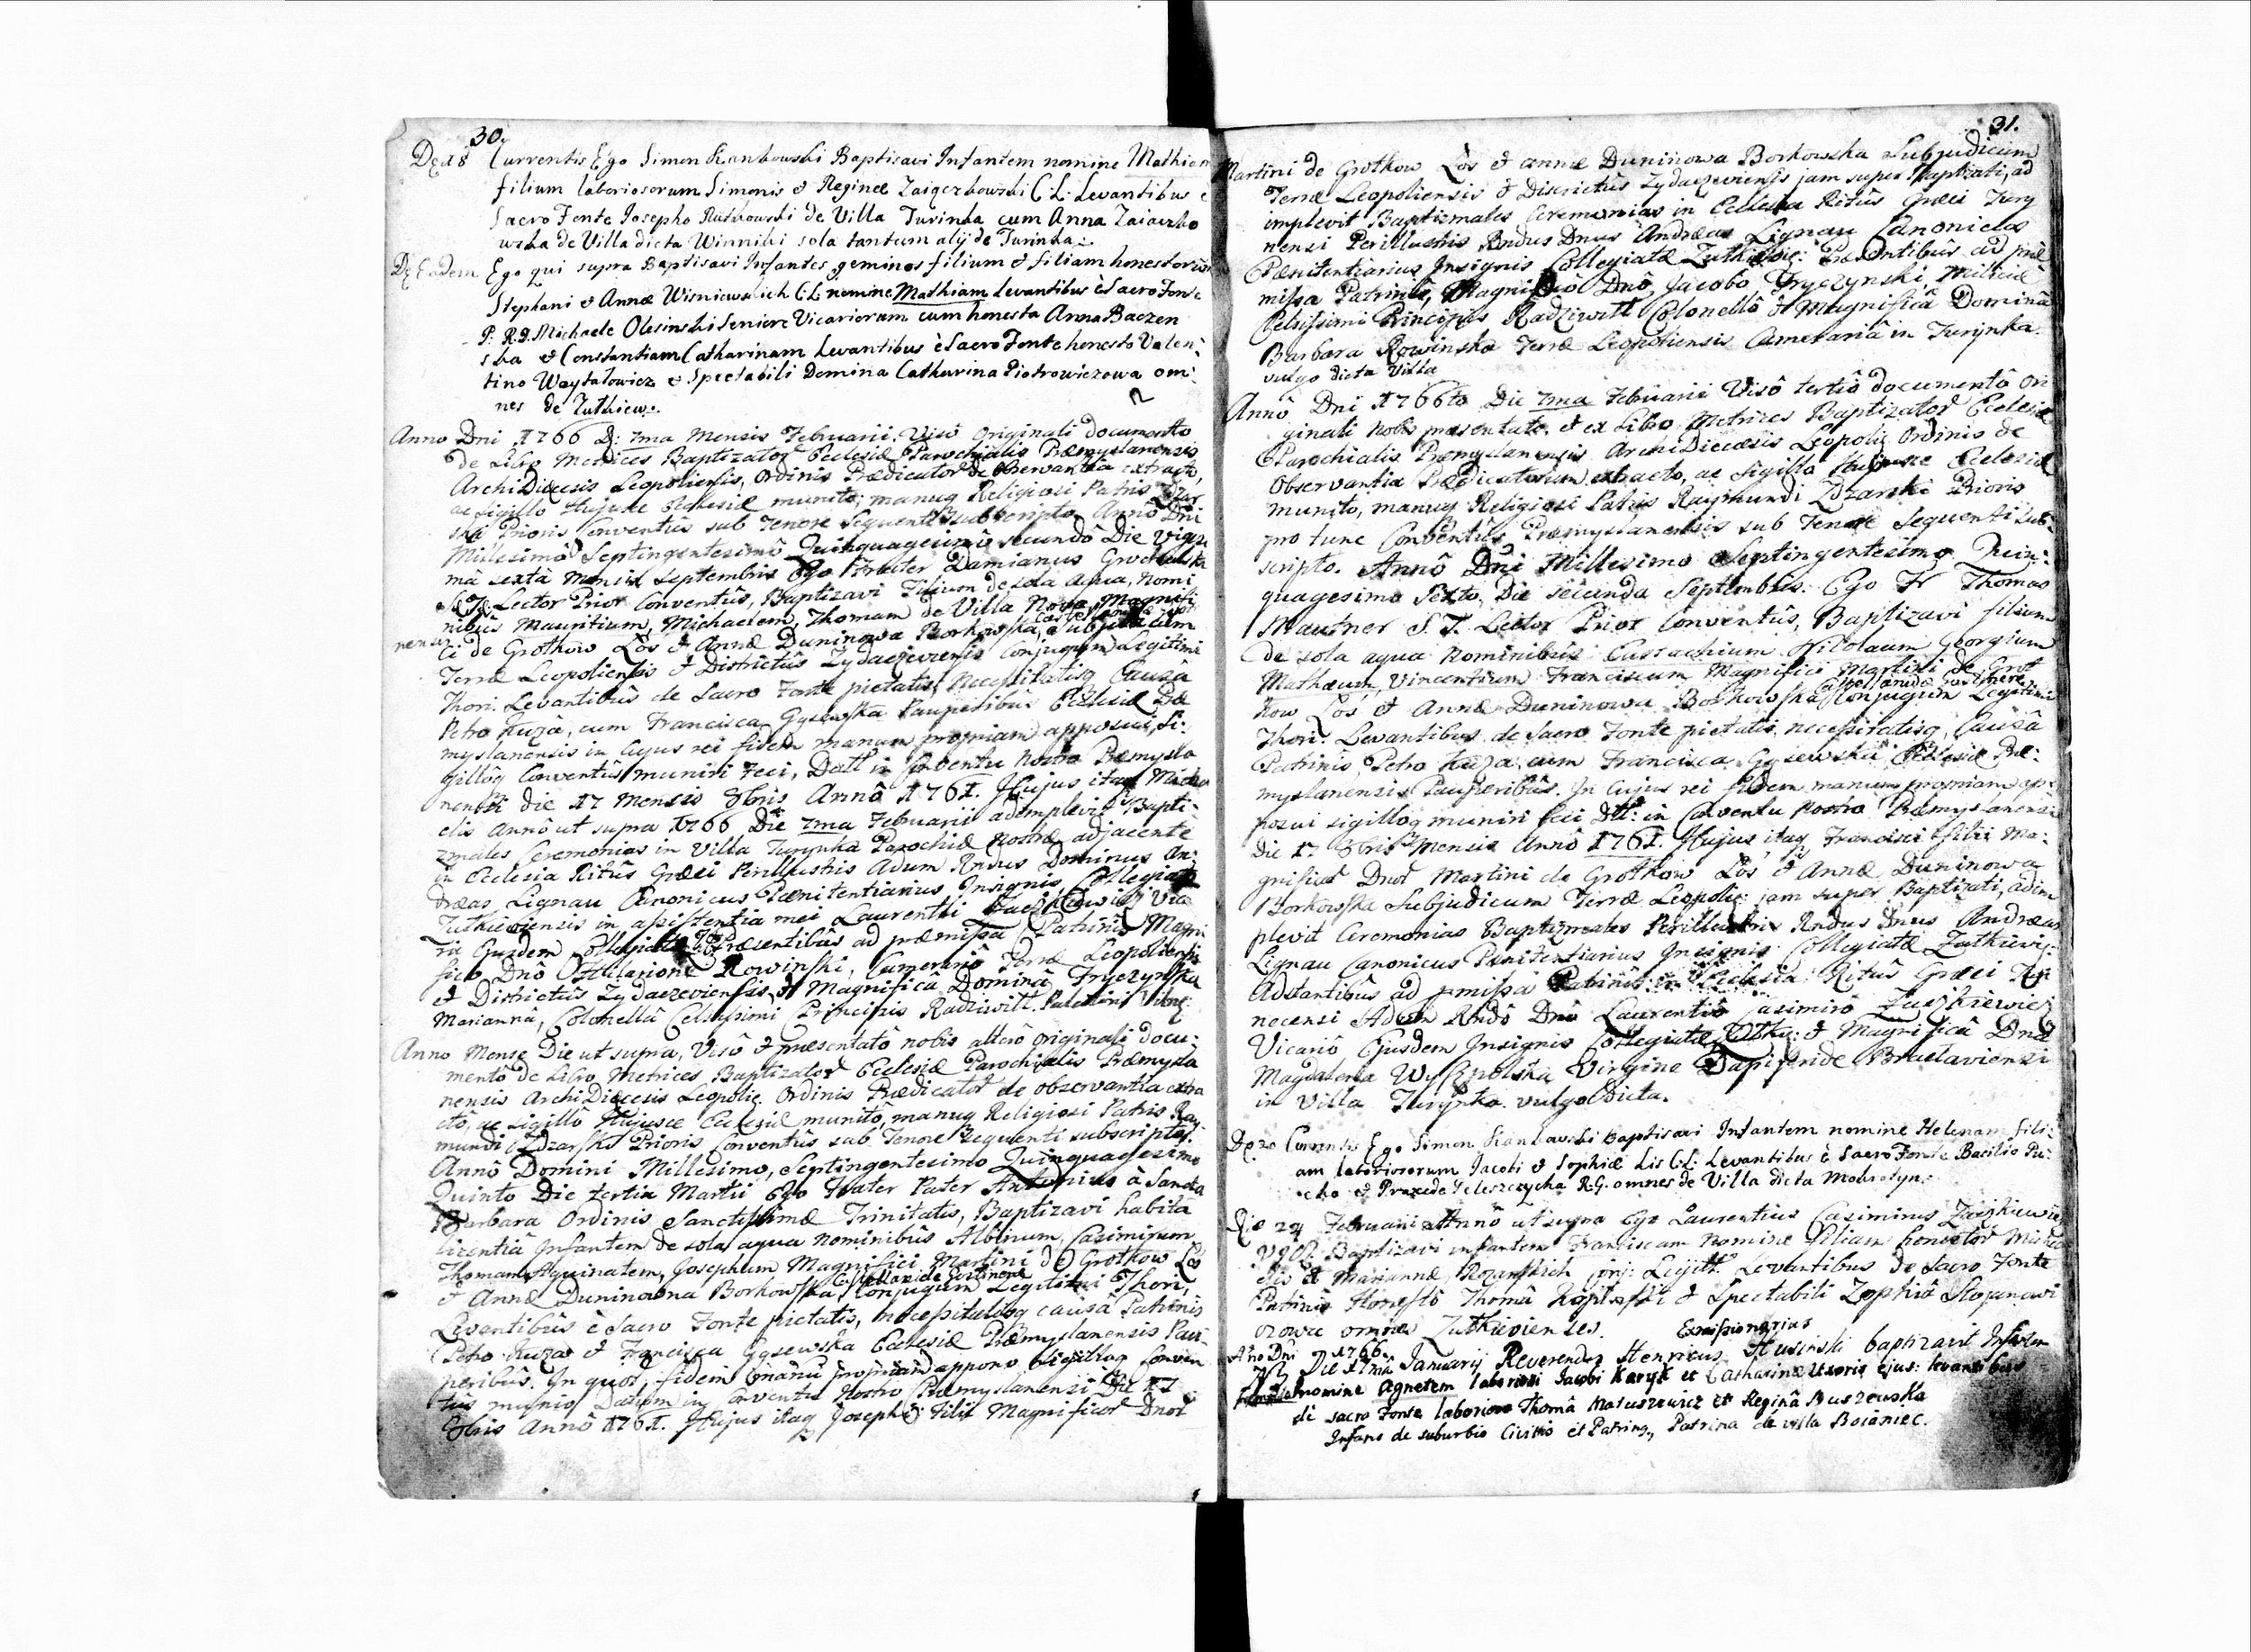 30.
Currentis Ego Simon Baptisavi Infantem nomine Mathiam
filium laboriosorum Simonis et Reginæ C: L: Levantibus e
Sacro Fonte Josepho Rutkowski de Villa Turinka cum Anna
wska de Villa dicta Winniki sola tantum alij de Turinka.
Eadem Ego qui supra Baptisavi Infantes geminos filium et filiam honestorum
Stephani et Annæ C: L: nomine Mathiam Levantibus è Sacro Fonte
Michaele Olesinski Seniore Vicariorum cum honesta Anna Baczen
ska et Constantiam Catharinam Levantibus è Sacro Fonte honesto Valen:
tino Waytalowicz et Spectabili Domina Catharina Piotrowiczowa om:
nes de
Anno Dni 1766 D: 7ma Mensis Februarii. Visô Originali documentto
de Libro Metrices Baptizator Ecclesiæ Parochialis Præmyslanensis
ArchiDiæcesis Leopoliensis, Ordinis Prædicator de Observantia extracto,
ac Sigillo Hujusce Ecclesiæ munitô; manuq Religiosi Patris
ski Prioris Conventûs sub Tenore Sequenti Subscripto Annô Dni
Millesimô Septingentesimô Quinquagesimô secundô Die Vigesi
ma sexta Mensis Septembris Ego Frater Damianus
S. T. Lector Prior Conventûs, Baptizavi Filium de sola aqua, nomi
nibus Mauritium, Michaelem, Thomam de Villa Nova Magnifi
ci de Grotkow Los et Annæ Duninowa Borkowska, Subjudicum
Terræ Leopoliensis et Districtûs Zydaczeviensis Conjugum Legitimi
Thori. Levantibûs de Sacro Fonte pietatis, Necessitatisq Causâ
Petro Kuza, cum Francisca Gysewska Pauperibûs Ecclesiæ Præ
myslanensis in Cujus rei fidem manum propriam apposui, si:
gillôq Conventûs muniri feci, Datt in Conventu Nostro Præmysla
nensi die 17 Mensis 8bris Annô 1761. Hujus itaq Micha
elis Annô ut supra 1766 Die 7ma Februarii adimplevit Bapti:
zmales Ceremonias in Villa Turynka Parochiæ Nostræ adjacente
in Ecclesia Ritûs Græci Perillustris Adum Rndus Dominus An:
dreas Lignau Canonicus Pænitentiarius Insignis Collegiatæ
Zutkieviensis in assistentia mei Laurentii Vica
rii Ejusdem Collegiatæ Præsentibûs ad præmissa Patrinis Magni
fico Dnô Hilarione Rowinski, Camerariô Terræ Leopoliensis
et Districtûs Zydaczeviensis, et Magnificâ Dominâ Fryczynska
Mariannâ, Colonellâ Celsissimi Principis Radziwitt Palatini
Anno Mense Die ut supra, Visô et præsentatô nobis alterô originali docu:
mentô de Libro Metrices Baptizator Ecclesiæ Parochialis Præmysla
nensis ArchiDiæcesis Leopolie: Ordinis Prædicator de observantia extra
ctô, ac sigillô Hujusce Ecclesiæ munitô, manuq Religiosi Patris Ray
mundi Prioris Conventûs sub Tenore Sequenti subscripto.
Annô Domini Millesimo, Septingentesimo Quinquagesimo
Quinto Die tertia Martii Ego Frater Pater Antonius à Sancta
Barbara Ordinis Sanctissimæ Trinitatis, Baptizavi habita
licentiâ Infantem de sola aqua nominibûs Albinum, Casimirum
Thomam Aquinatem, Josephum Magnifici Martini de Grotkow Los
et Annæ Duninowna Borkowska Conjugum Legitimi Thori,
Levantibûs è Sacro Fonte pietatis, necessitatisq causâ Patrinis
Petro Kuza et Francisca Gysewska Ecclesiæ Præmyslanensis Pau
peribûs. In quor fidem manû propriam appono Sigilloq Conven
tûs munio Datum in Conventu Nostro Præmyslanensi Die 17
8bris Annô 1761. Hujus itaq Josephi Filii Magnificor Dnor
31.
Martini de Grotkow Los et annæ Duninowa Borkowska Subjudicum
Terræ Leopoliensis et Districtûs Zydaczeviensis jam super Baptizati, ad
implevit Baptizmales Ceremonias in Ecclesia Ritûs Græci Tury
nensi Perillustris Rndus Dnus Andreas Lignau Canonicus
Pænitentiarius Insignis Collegiatæ Præsentibûs ad præ
missa Patrinis, Magnifico Dnô Jacobo Fryczynski, Militiæ
Celsissimi Principis Radziwitt Colonellô et Magnificâ Dominâ
Barbara Rowinska Terræ Leopoliensis Camerariâ in Turynka
vulgo dicta Villa
Annô Dni 1766to Die 7ma Februarii Visô tertiô documentô Ori
ginali nobis præsentato, et ex Libro Metrices Baptizator Ecclesiæ
Parochialis Præmyslanensis ArchiDiæcesis Leopolie Ordinis de
Observantia Prædicatorum extracto, ac Sigillo Hujusce Ecclesiæ
munito, manuq Religiosi Patris Raymundi Prioris
pro tunc Conventûs Præmyslanensis sub Tenore Sequenti sub:
scripto. Annô Dni Millesimo Septingentesimo Quin:
quagesimo Sexto Die secunda Septembris Ego Fr Thomas
Mautner S. T. Lector Prior Conventûs, Baptizavi filium
de sola aqua Nominibûs Eustachium Nicolaum Georgium
Mathæum, Vincentium Franciscum Magnifici Martini de Grot
kow Los et Annæ Duninowa Borkowska Conjugum Legitimi
Thori. Levantibûs de Sacro Fonte pietatis, necessitatisq Causâ
Patrinis Petro Kuza cum Francisca Gysewska Ecclesiæ Præ:
myslanensis Pauperibûs. In Cujus rei fidem manum propriam ap
posui sigilloq muniri feci Dtt: in Conventu Nostro Præmyslanensi
Die 17 8bris Mensis Annô 1761. Hujus itaq Francisci filii Ma:
gnificor Dnor Martini de Grotkow Los et Annæ Duninowa
Borkowska Subjudicum Terræ Leopolie: jam super Baptizati, adim
plevit Ceremonias Baptizmales Perillustris Rndus Dnus Andreas
Lignau Canonicus Pænitentiarius Insignis Collegiatæ
Adstantibûs ad pmissa Patrinis in Ecclesia Ritûs Græci
Rndô Dnô Laurentiô Casimirô
Vicariô Ejusdem Insignis Collegiatæ et Magnificâ Dnâ
Magdalena Virgine Dapiferide Braclaviensi
in Villa Turynka vulgo Dicta.
Currentis Ego Simon Baptisavi Infantem nomine Helenam fili:
am laboriosorum Jacobi et Sophiæ Lis C: L: Levantibus è Sacro Fonte Basilio Pu:
cho et Praxede Teleszczycha R. G. omnes de Villa dicta Mokrotyn.
Die 24 Februarii Annô ut supra Ego Laurentius Casimirus
Baptizavi infantem Franciscam Nomine Filiam honestor Micha
elis et Mariannæ Legitt. Levantibûs de Sacro Fonte
Patrinis Honestô Thomâ et Spectabili Zophiâ Stojanowi
czowa omnes Zutkievienses.
Anno Dni 1766. Exmissionarius
Die Januarij Reverendus Henricus baptizavit Infantem
nomine Agnetem laboriosi Jacobi Karyk et Catharinæ Uxoris ejus: levantibus
di sacro Fonte laborioso Thomâ Matuszewicz et Reginâ Buszewska
Infans de suburbio Civitis et Patrinq, Patrina de villa Boianiec.